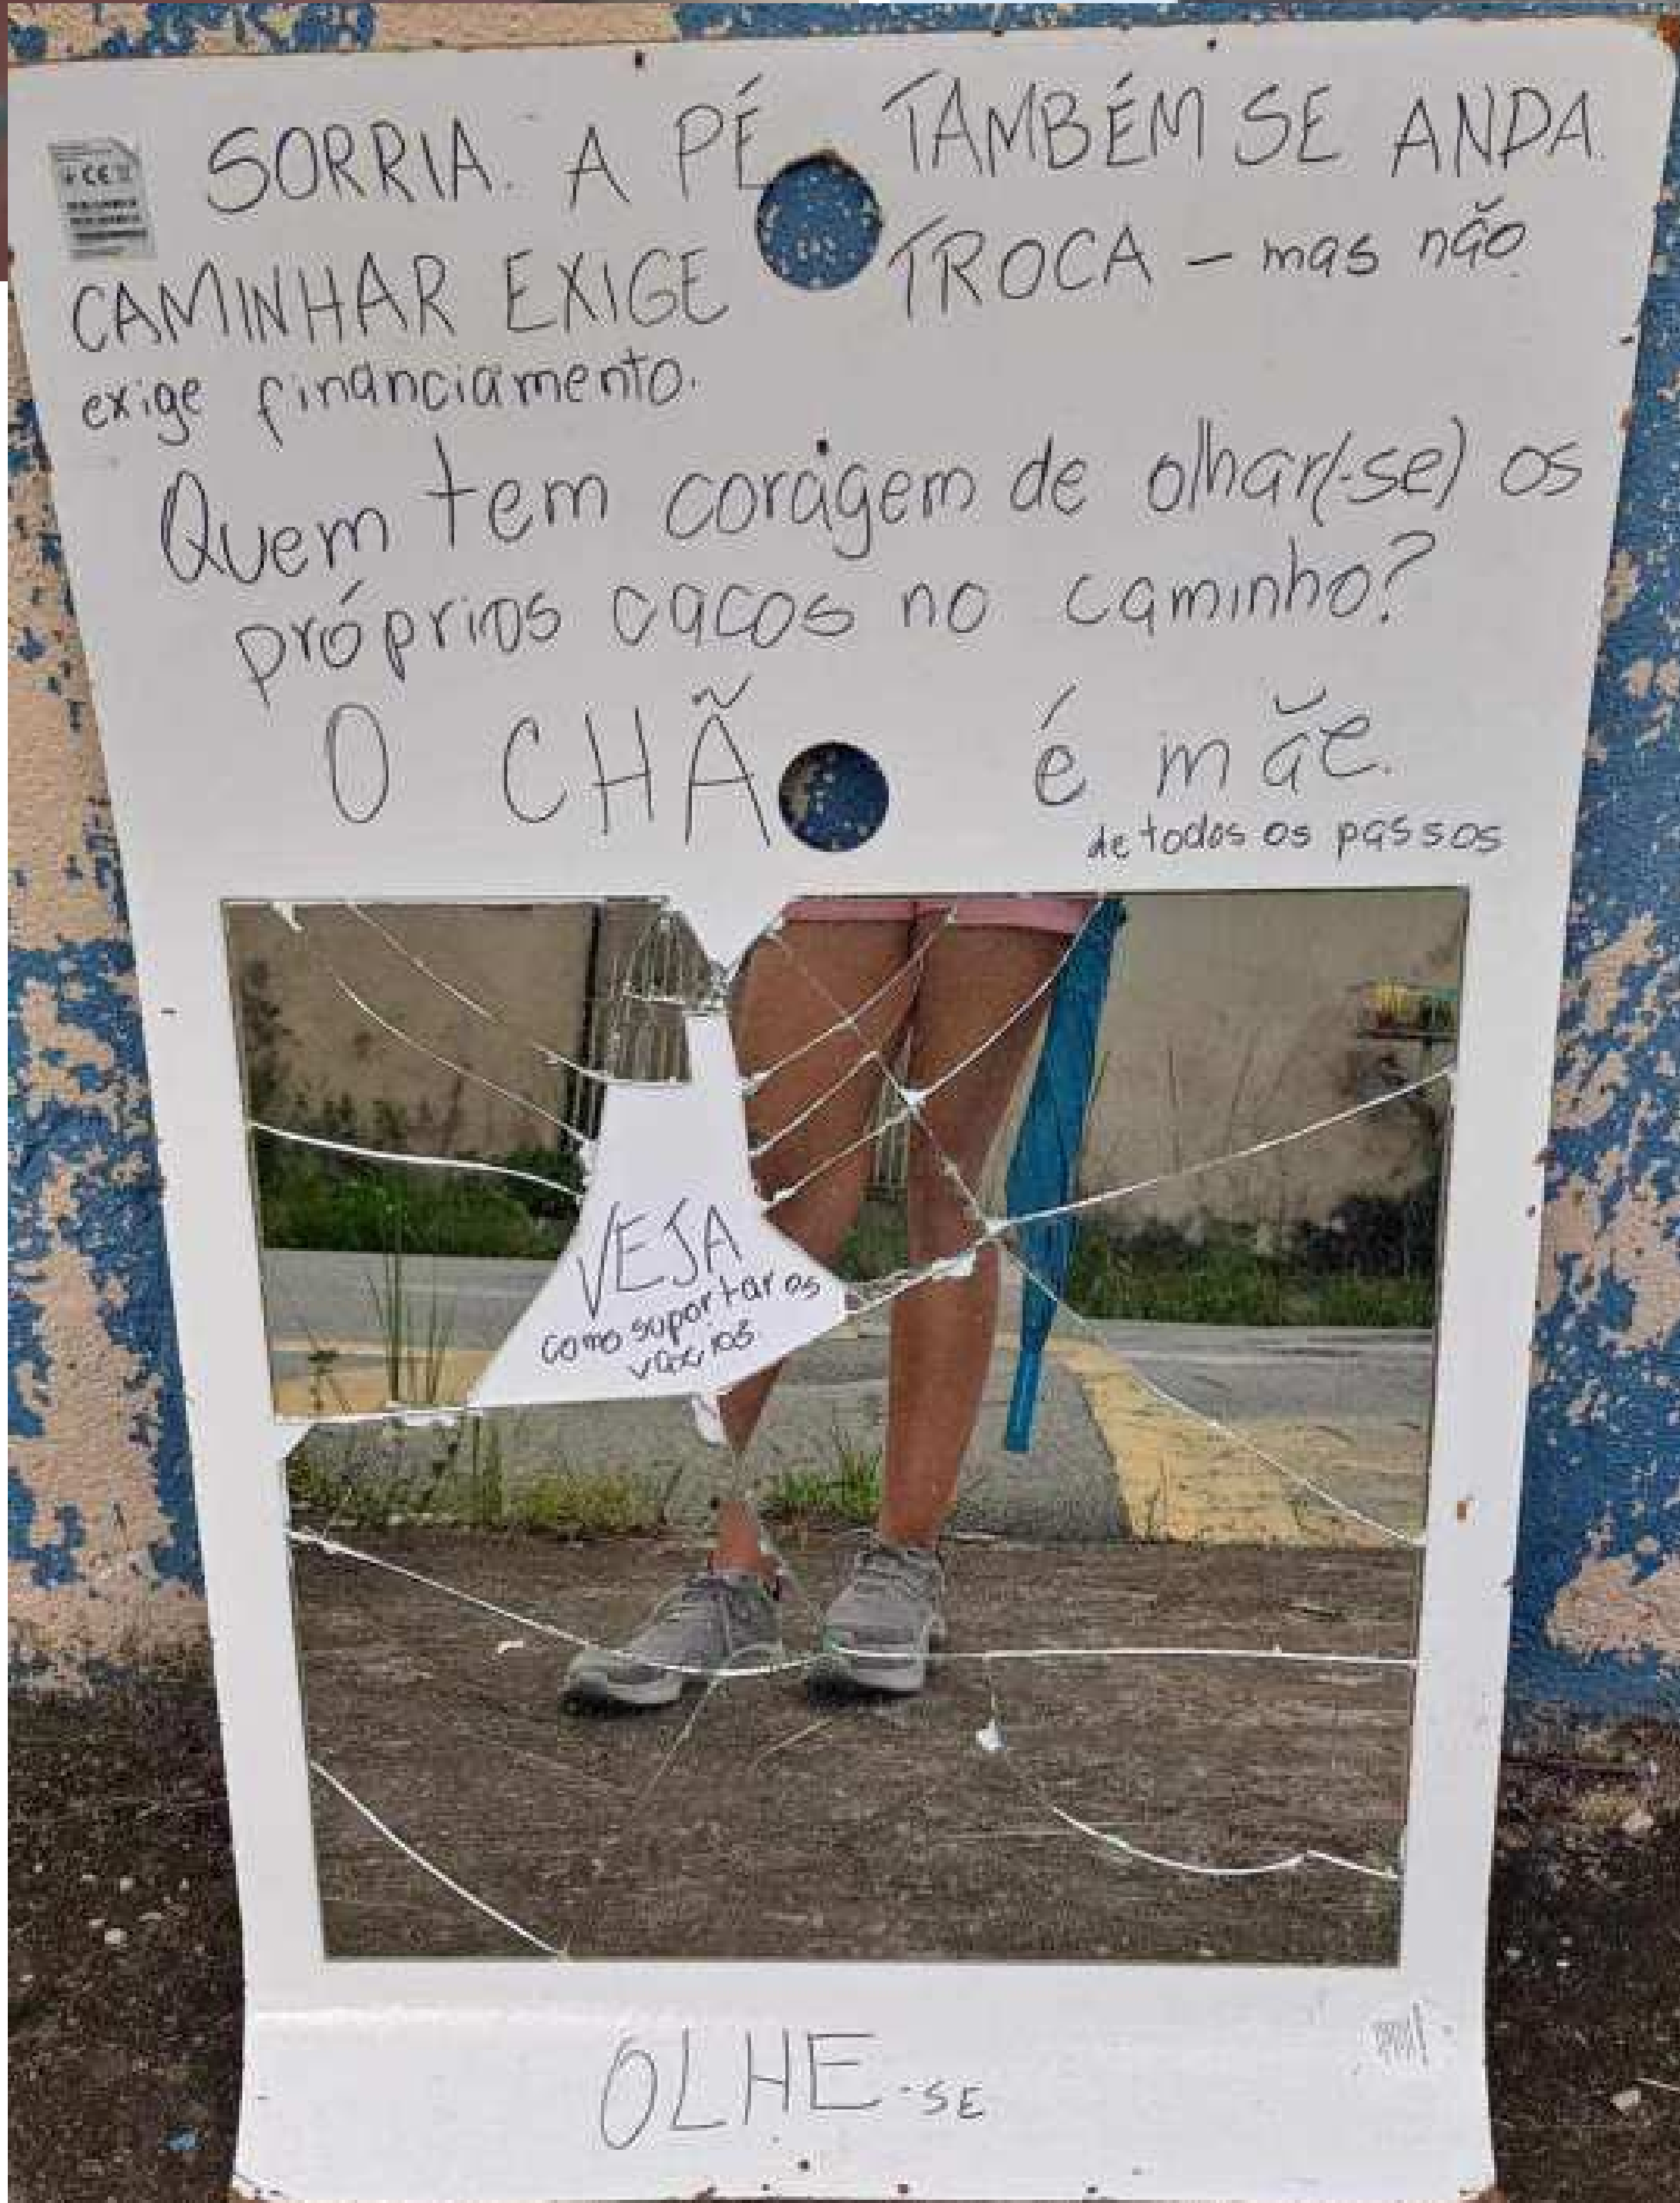 CE
SORRIA. A PÉ TAMBÉM SE ANDA.
CAMINHAR EXIGE TROCA - mas não
exige financiamento.
Quem tem coragem de olhar(-se) os
próprios cacos no caminho?
O CHÃO é mãe.
de todos os passos
VEJA
como suportar os
vazios
OLHE-SE